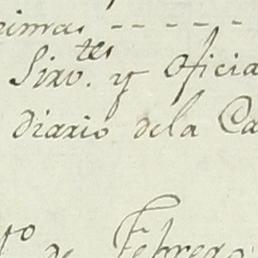 rimas - - - - - -
Sirv.tes y Oficia
diario dela Ca
to de Febrero